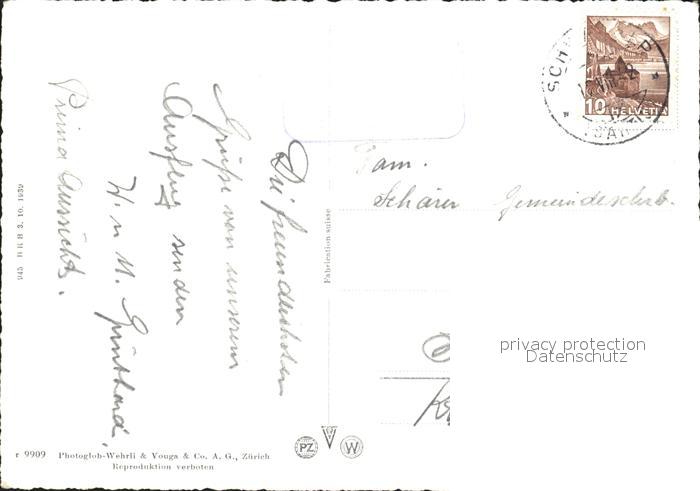 Die freundlichsten
Grüße von unserem
Ausflug senden
W. u. M. Günthard.
Prima Aussicht.
Fam.
Schärer Gemeindeschrb.
10 HELVETIA
Fabrication suisse
945 B R B 3. 10. 1939
r 9909 Photoglob-Wehrli & Vouga & Co. A. G., Zürich
Reproduktion verboten
PZ V W
privacy protection
Datenschutz